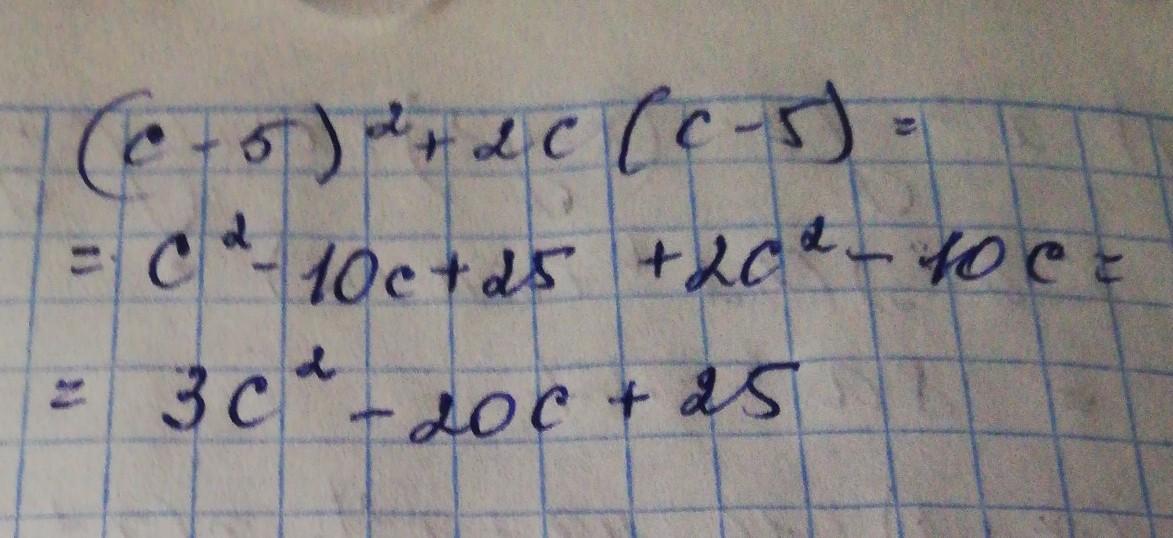 (c - 5)² + 2c (c - 5) =
= c² - 10c + 25 + 2c² - 10c =
= 3c² - 20c + 25